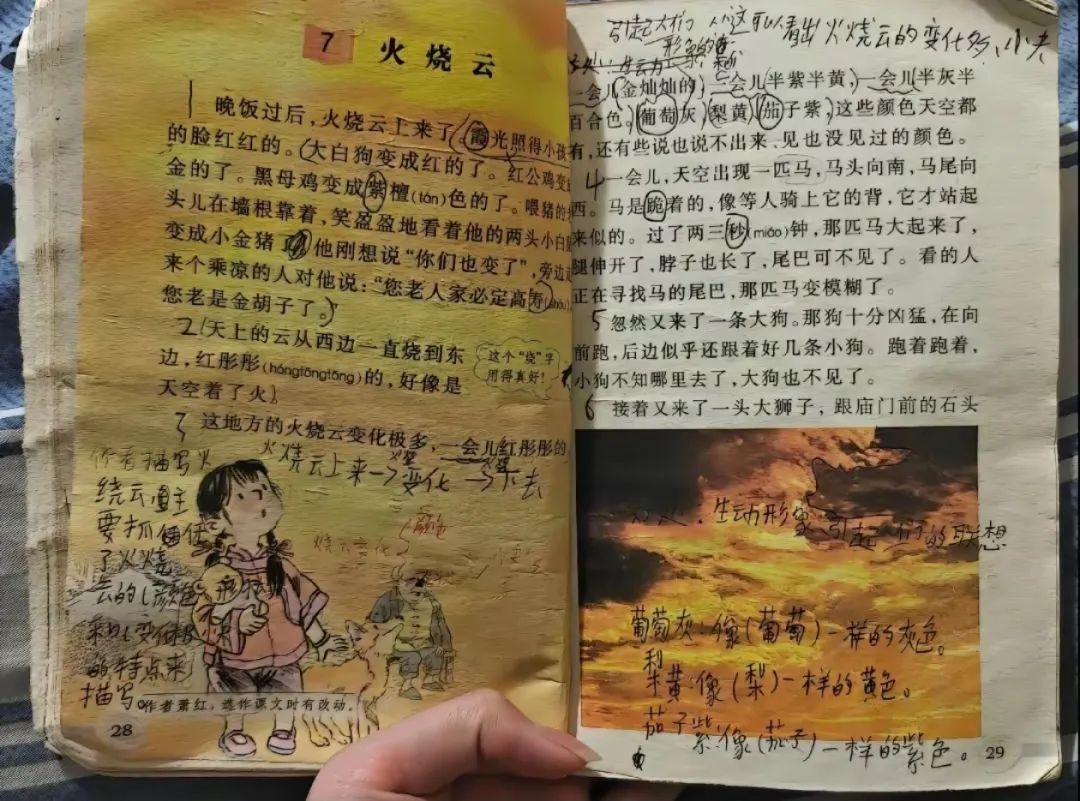 7 火烧云
晚饭过后，火烧云上来了。霞光照得小孩
的脸红红的。大白狗变成红的了。红公鸡变成
金的了。黑母鸡变成紫檀(tán)色的了。喂猪的老
头儿在墙根靠着，笑盈盈地看着他的两头小白猪
变成小金猪了。他刚想说“你们也变了”，旁边走
来个乘凉的人对他说：“您老人家必定高寿(shòu)，
您老是金胡子了。”
天上的云从西边一直烧到东
边，红彤彤(hóngtōngtōng)的，好像是
天空着了火。
这个“烧”字
用得真好！
这地方的火烧云变化极多，一会儿红彤彤的
火烧云上来→变化→下去
作者描写火
烧云主
要抓住
了火烧
云的颜色 形状
和变化极
的特点来
描写。
颜色
作者萧红，选作课文时有改动。
28
引起 从这可以看出火烧云的变化多
一会儿金灿灿的，一会儿半紫半黄，一会儿半灰半
百合色。葡萄灰，梨黄，茄子紫，这些颜色天空都
有，还有些说也说不出来、见也没见过的颜色。
4 一会儿，天空出现一匹马，马头向南，马尾向
西。马是跪着的，像等人骑上它的背，它才站起
来似的。过了两三秒(miǎo)钟，那匹马大起来了，
腿伸开了，脖子也长了，尾巴可不见了。看的人
正在寻找马的尾巴，那匹马变模糊了。
5 忽然又来了一条大狗。那狗十分凶猛，在向
前跑，后边似乎还跟着好几条小狗。跑着跑着，
小狗不知哪里去了，大狗也不见了。
6 接着又来了一头大狮子，跟庙门前的石头
生动形象 引起人们的联想
葡萄灰：像(葡萄)一样的灰色。
梨黄：像(梨)一样的黄色。
茄子紫：像(茄子)一样的紫色。
29